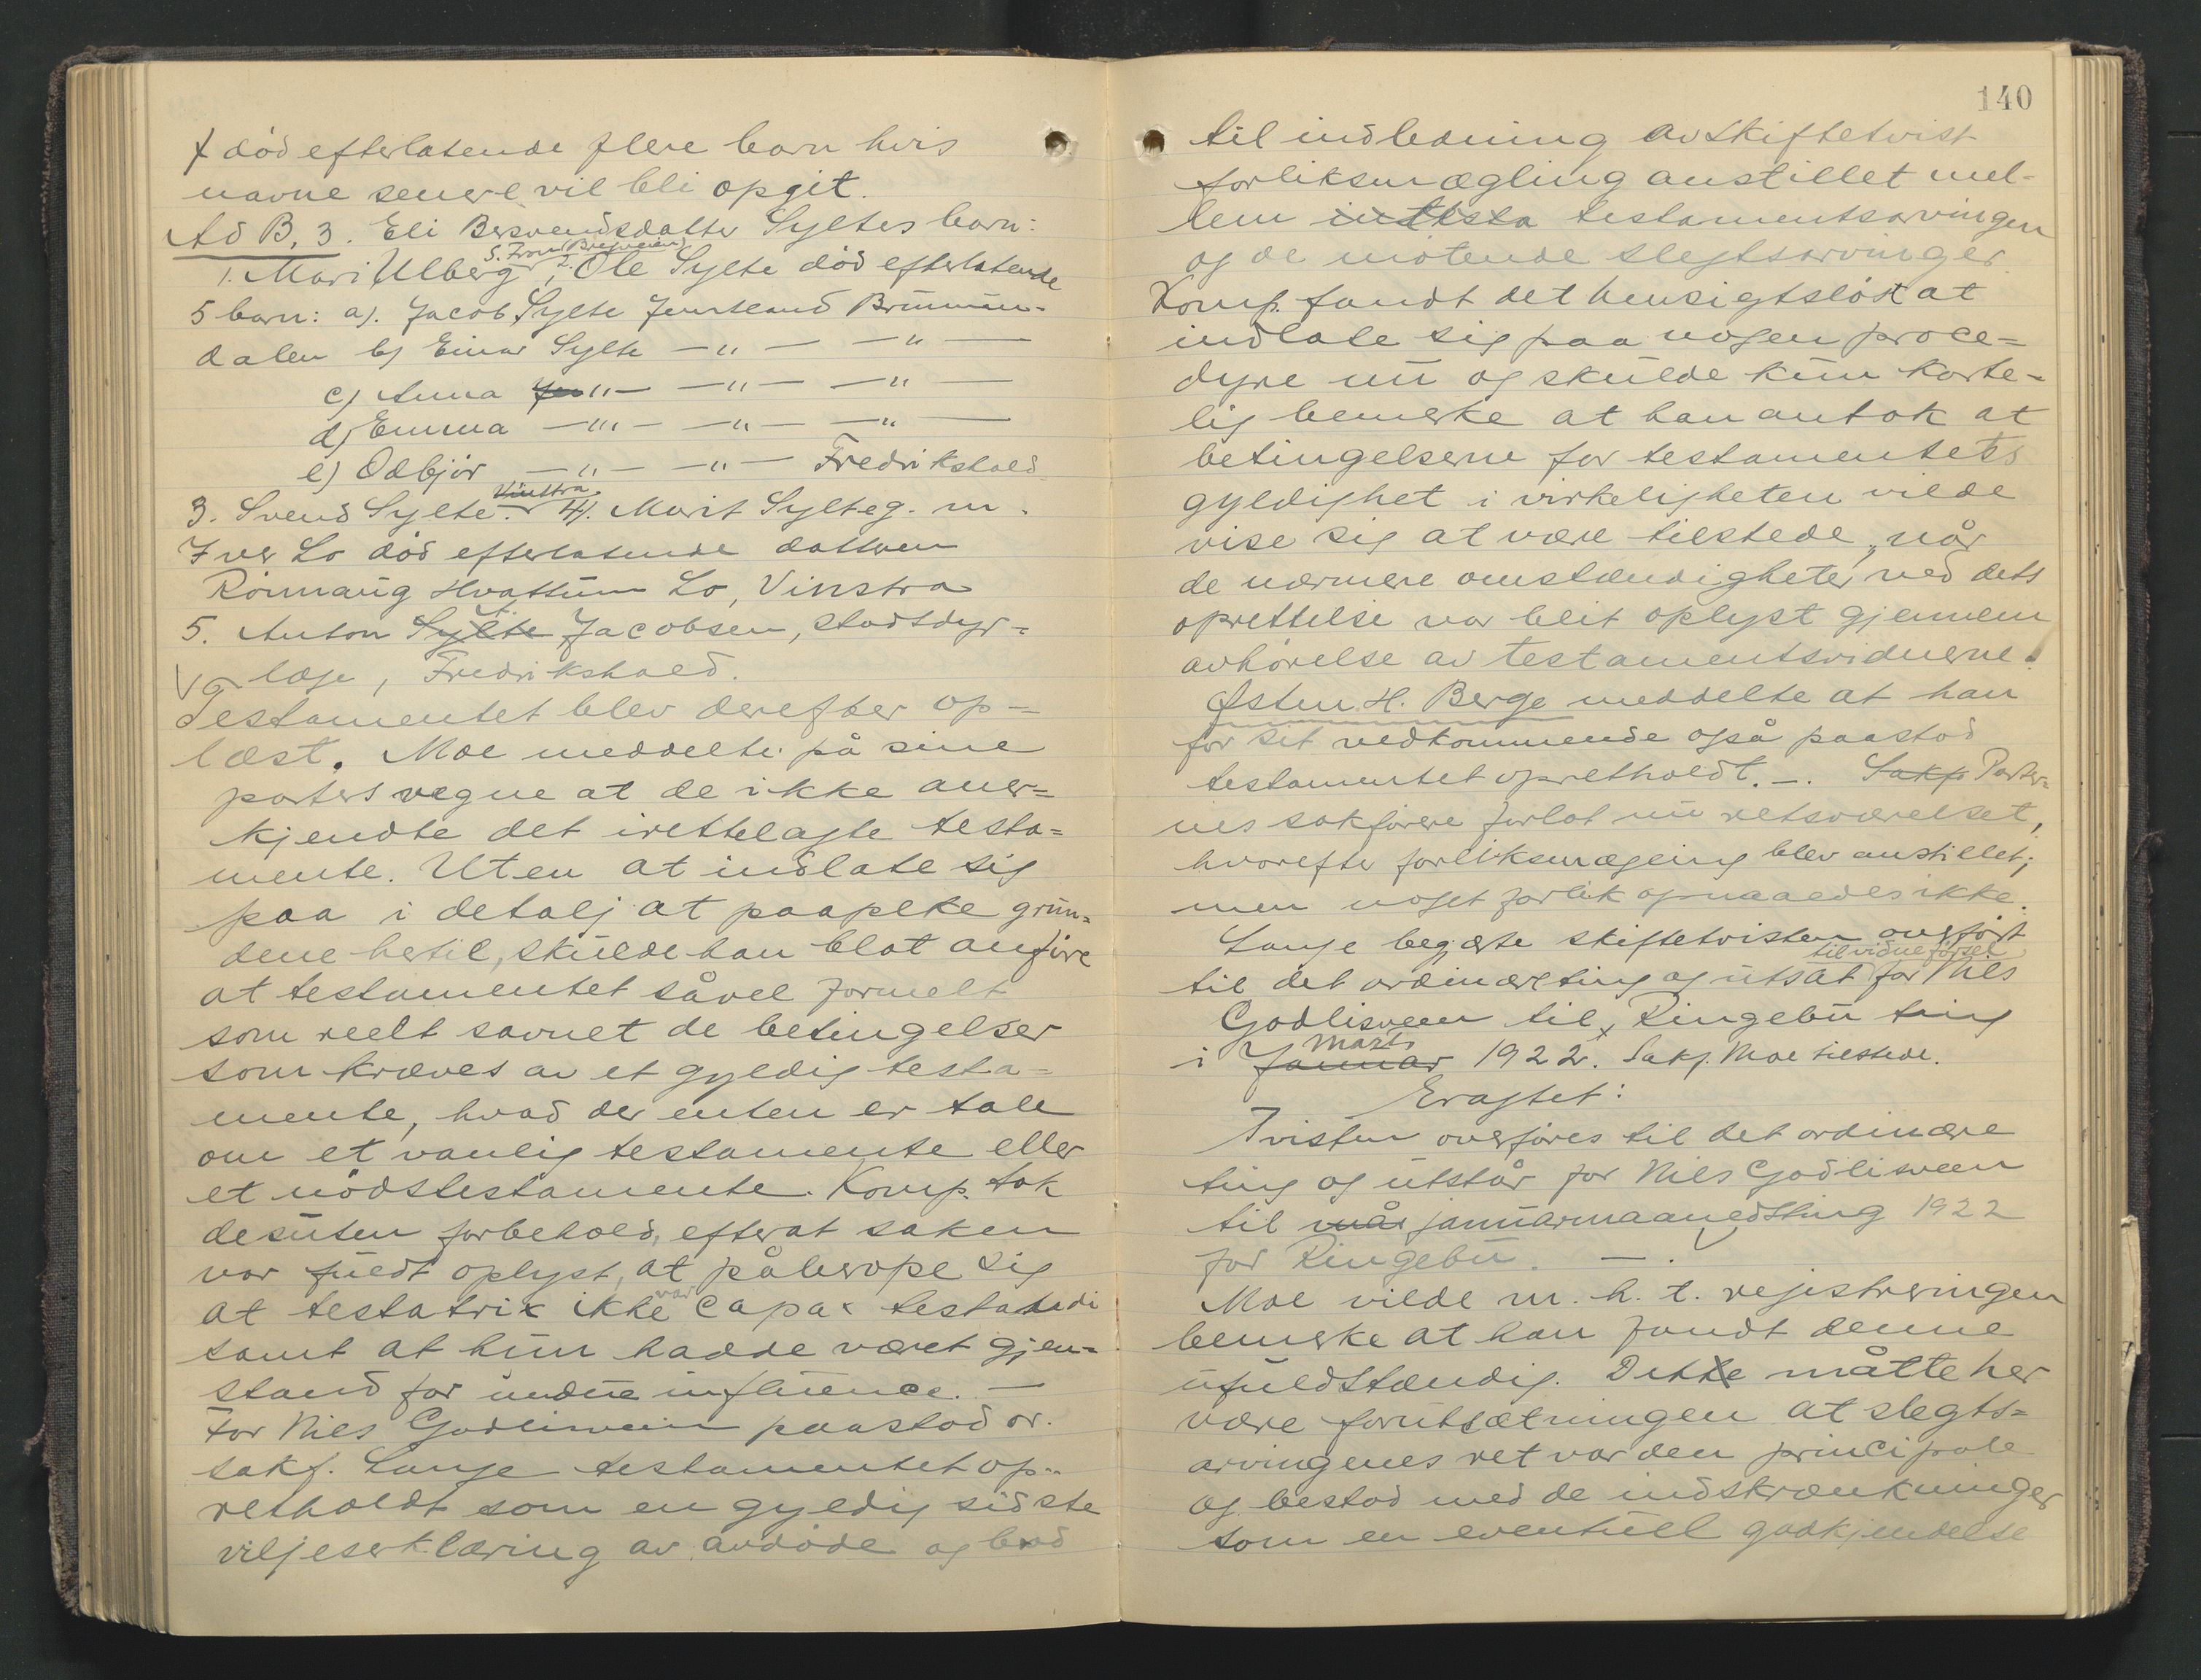 død efterlatende flere barn hvis
navne senere vil bli opgit.
Ad B, 3. Eli Bersvendsdatter Syltes barn:
1. Mari Ulberg S. Fron (Bregveien), 2. Ole Sylte død efterlatende
5 barn: a). Jacob Sylte Jemtland Brummun-
dalen b) Einar Sylte —"— —"—
c) Anna —"— —"— —"—
d) Emma —"— —"— —"—
e) Odbjör —"— —"— Fredrikshald
3. Svend Sylte. Vinstra. 4). Marit Sylte g. m.
Iver Lo död efterlatende datteren
Rönnaug Hvattum Lo, Vinstra
5. Anton Sylte Jacobsen, stadsdyr=
læge, Fredrikshald.
Testamentet blev derefter op=
læst. Moe meddelte på sine
parters vegne at de ikke aner=
kjendte det irettelagte testa=
mente. Uten at indlate sig
paa i detalj at paapeke grun=
dene hertil, skulde han blot anføre
at testamentet såvel formelt
som reelt savnet de betingelser
som kræves av et gyldig testa=
mente, hvad der enten er tale
om et vanlig testamente eller
et nödstestamente. Komp. tok
desuten forbehold, efterat saken
var fuldt oplyst, at påberope sig
at testatrix ikke var capax testandi
samt at hun hadde været gjen=
stand for undue influence. —
For Niels Godlisveen paastod or.
sakf. Lange testamentet op=
retholdt som en gyldig sidste
viljeserklæring av avdöde og bad
140
til indledning av skiftetvist
forliksmægling anstillet mel-
lem intesta testamentsarvingen
og de mötende slegtsarvinger.
Komp. fandt det hensigtslöst at
indlate sig paa nogen proce=
dyre nu og skulde kun korte-
lig bemerke at han antok at
betingelserne for testamentets
gyldighet i virkeligheten vilde
vise sig at være tilstede, når
de nærmere omstændigheter ved dets
oprettelse var bleit oplyst gjennem
avhörelse av testamentsvidnerne.
Østen H. Berge meddelte at han
for sit vedkommende også paastod
testamentet opretholdt. —. Sakf. Parter=
nes sakförere forlot nu retsværelset,
hvorefter forliksmægling blev anstillet;
men noget forlik opnaaedes ikke.
Lange begjærte skiftetvisten overfört
til det ordinære ting og utsat til vidneförsel for Niels
Godlisveen til Ringebu ting
i Januar Marts 1922. Sakf. Moe tilstede.
Eragtet:
Tvisten overföres til det ordinære
ting og utstår for Niels Godlisveen
til mår januarmaanedsting 1922
for Ringebu. —.
Moe vilde m. h. t. registreringen
bemerke at han fandt denne
ufuldstændig. Dette måtte her
være forutsætningen at slegts=
arvingenes ret var den principale
og bestod med de indskrænkninger
som en eventuell godkjendelse